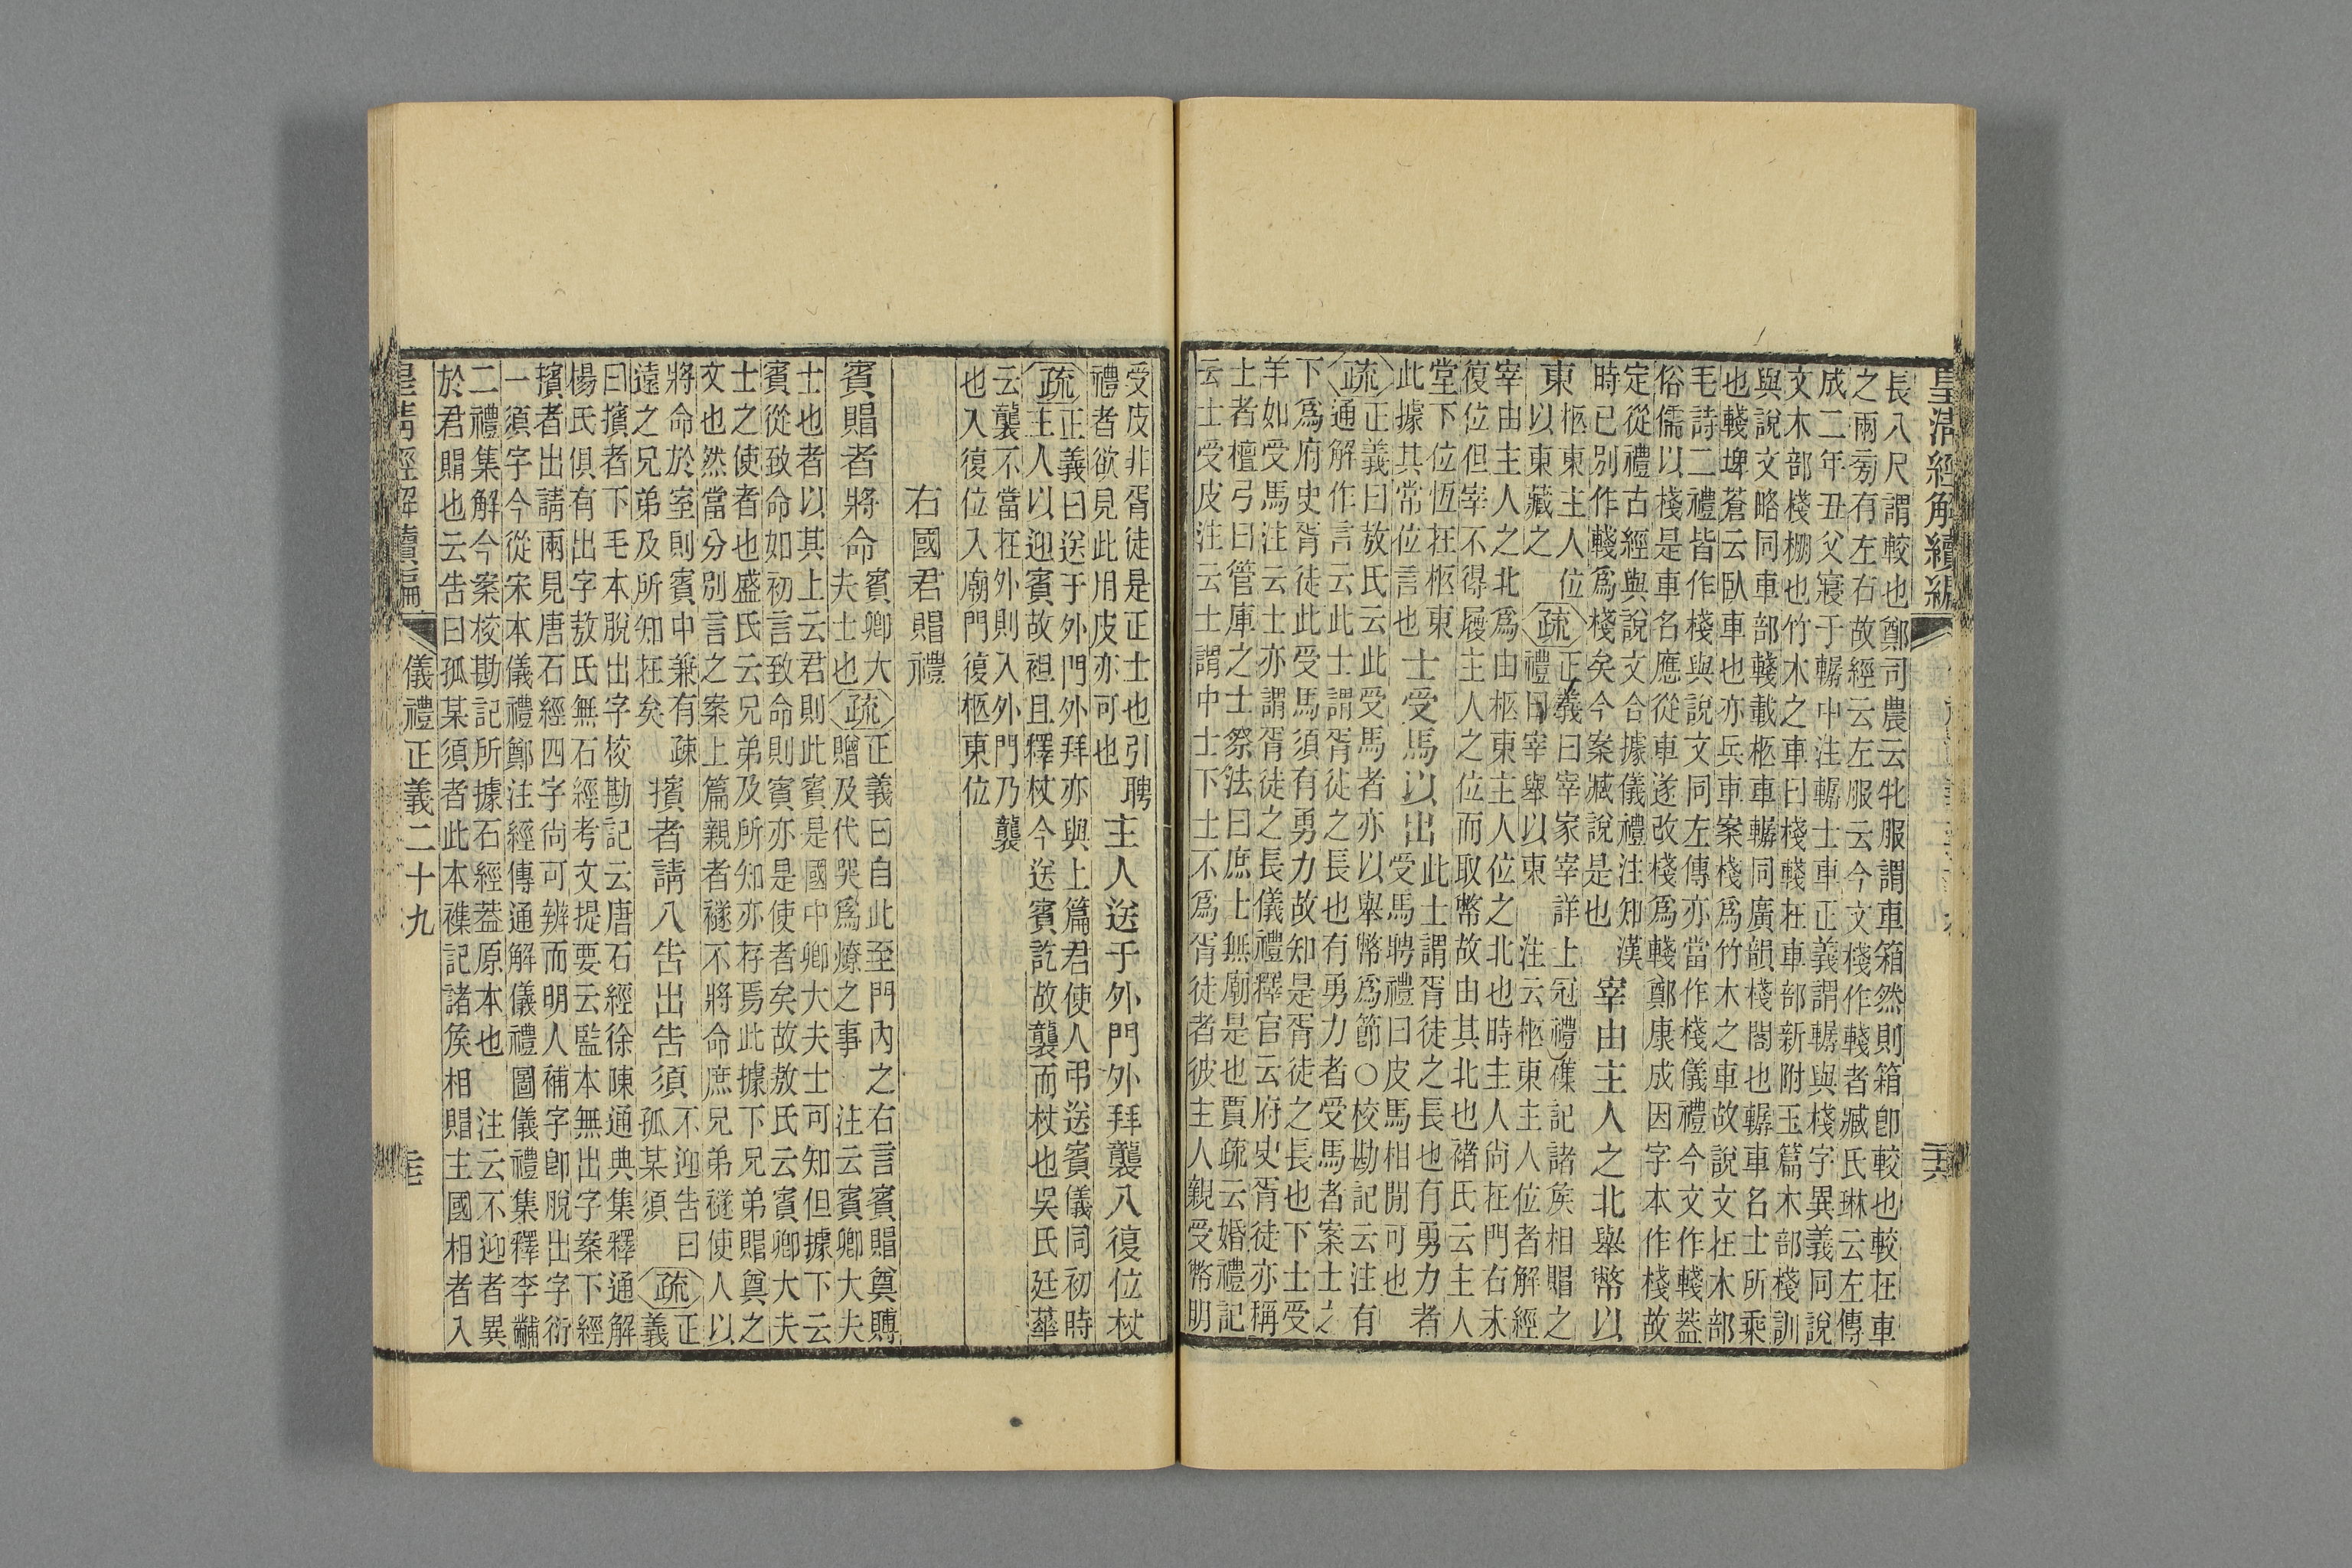 皇清經解續編
長八尺謂較也鄭司農云牝服謂車箱然則箱卽較也較在車
之兩旁有左右故經云左服云今文棧作輚者臧氏琳云左傳
成二年丑父寢于轏中注轏士車正義謂轏與棧字異義同說
文木部棧棚也竹木之車曰棧輚在車部新附玉篇木部棧訓
與說文略同車部輚載柩車轏同廣韻棧閣也轏車名士所乘
也輚埤蒼云臥車也亦兵車案棧爲竹木之車故說文在木部
毛詩二禮皆作棧與說文同左傳亦當作棧儀禮今文作輚蓋
俗儒以棧是車名應從車遂改棧爲輚鄭康成因字本作棧故
定從禮古經與說文合據儀禮注知漢
時已別作輚爲棧矣今案臧說是也
宰由主人之北舉幣以
東
柩東主人位
以東藏之
疏
正義曰宰家宰詳上冠禮襍記諸矦相賵之
禮曰宰舉以東　注云柩東主人位者解經
宰由主人之北爲由柩東主人位之北也時主人尙在門右未
復位但宰不得履主人之位而取幣故由其北也褚氏云主人
堂下位恆在柩東
此據其常位言也
士受馬以出
此士謂胥徒之長也有勇力者
受馬聘禮曰皮馬相閒可也
疏
正義曰敖氏云此受馬者亦以舉幣爲節○校勘記云注有
通解作言云此士謂胥徒之長也有勇力者受馬者案士之
下爲府史胥徒此受馬須有勇力故知是胥徒之長也下士受
羊如受馬注云士亦謂胥徒之長儀禮釋官云府史胥徒亦稱
士者檀弓曰管庫之士祭法曰庶士無廟是也賈疏云婚禮記
云士受皮注云士謂中士下士不爲胥徒者彼主人親受幣明
受皮非胥徒是正士也引聘
禮者欲見此用皮亦可也
主人送于外門外拜襲入復位杖
疏
正義曰送于外門外拜亦與上篇君使人弔送賓儀同初時
主人以迎賓故袒且釋杖今送賓訖故襲而杖也吳氏廷華
云襲不當在外則入外門乃襲
也入復位入廟門復柩東位
右國君賵禮
賓賵者將命
賓卿大
夫士也
疏
正義曰自此至門內之右言賓賵奠賻
贈及代哭爲燎之事　注云賓卿大夫
士也者以其上云君則此賓是國中卿大夫士可知但據下云
賓從致命如初言致命則賓亦是使者矣故敖氏云賓卿大夫
士之使者也盛氏云兄弟及所知亦存焉此據下兄弟賵奠之
文也然當分別言之案上篇親者禭不將命庶兄弟禭使人以
將命於室則賓中兼有疎
遠之兄弟及所知在矣
擯者請入告出告須
不迎告曰
孤某須
疏
正
義
曰擯者下毛本脫出字校勘記云唐石經徐陳通典集釋通解
楊氏俱有出字敖氏無石經考文提要云監本無出字案下經
擯者出請兩見唐石經四字尙可辨而明人補字卽脫出字衍
一須字今從宋本儀禮鄭注經傳通解儀禮圖儀禮集釋李黼
二禮集解今案校勘記所據石經蓋原本也　注云不迎者異
於君賵也云告曰孤某須者此本襍記諸矦相賵主國相者入
皇清經解續編
儀禮正義二十九